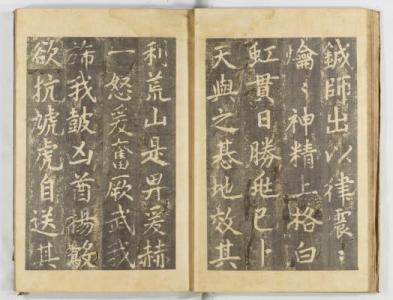 鉞師出以律震〻
爚〻神精上格白
虹貫日勝兆已卜
天與之基地效其
利荒山是畀爰赫
一怒爰奮厥武我
旆我鼓凶酋
欲抗虓虎自送其